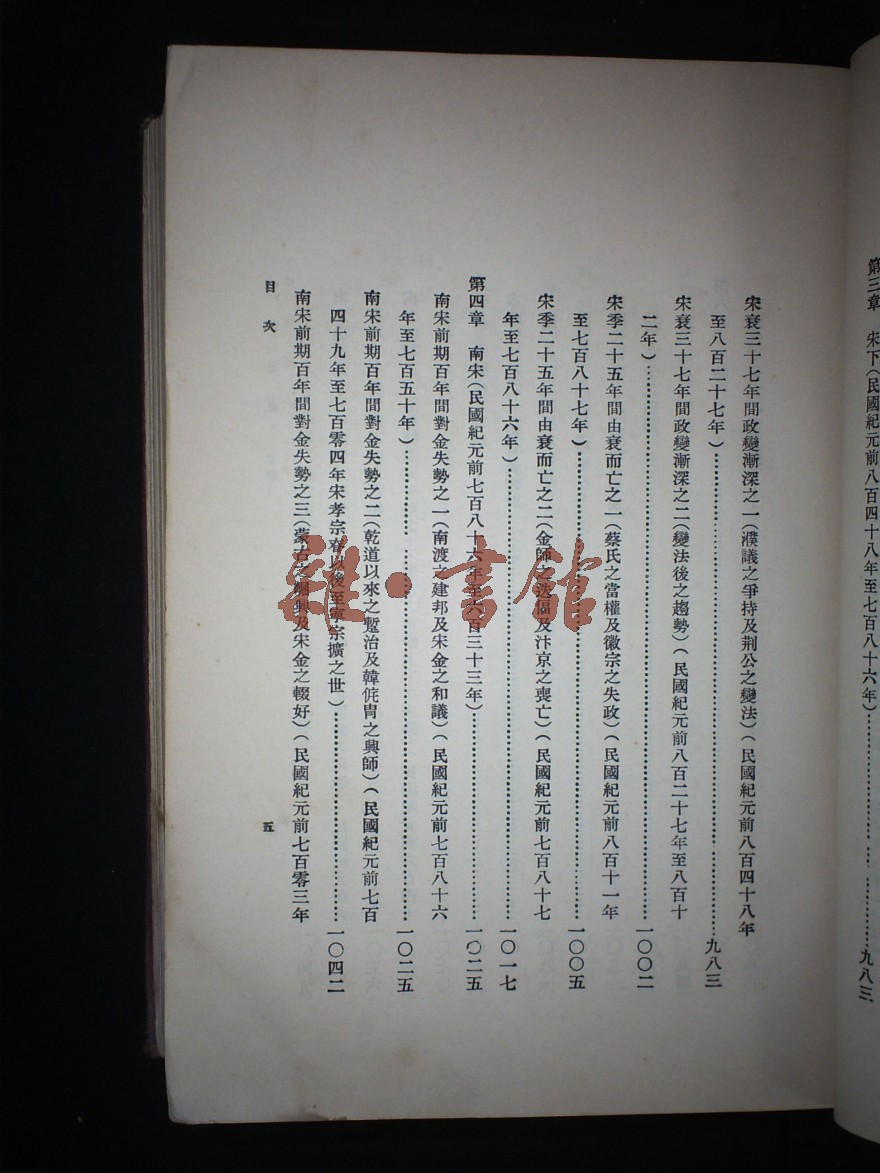 第三章　宋下(民國紀元前八百四十八年至七百八十六年)……九八三
宋衰三十七年間政變漸深之一(濮議之爭持及荆公之變法)(民國紀元前八百四十八年
至八百二十七年)……九八三
宋衰三十七年間政變漸深之二(變法後之趨勢)(民國紀元前八百二十七年至八百十
二年)……一〇〇二
宋季二十五年間由衰而亡之一(蔡氏之當權及徽宗之失政)(民國紀元前八百十一年
至七百八十七年)……一〇〇五
宋季二十五年間由衰而亡之二(金師之迭偪及汴京之喪亡)(民國紀元前七百八十七
年至七百八十六年)……一〇一七
第四章　南宋(民國紀元前七百八十六年至六百三十三年)……一〇二五
南宋前期百年間對金失勢之一(南渡之建邦及宋金之和議)(民國紀元前七百八十六
年至七百五十年)……一〇二五
南宋前期百年間對金失勢之二(乾道以來之蹔治及韓侂胄之興師)(民國紀元前七百
四十九年至七百零四年宋孝宗眘以後至寧宗擴之世)……一〇四二
南宋前期百年間對金失勢之三(蒙古之崛興及宋金之輟好)(民國紀元前七百零三年
目次
五
雜·書館